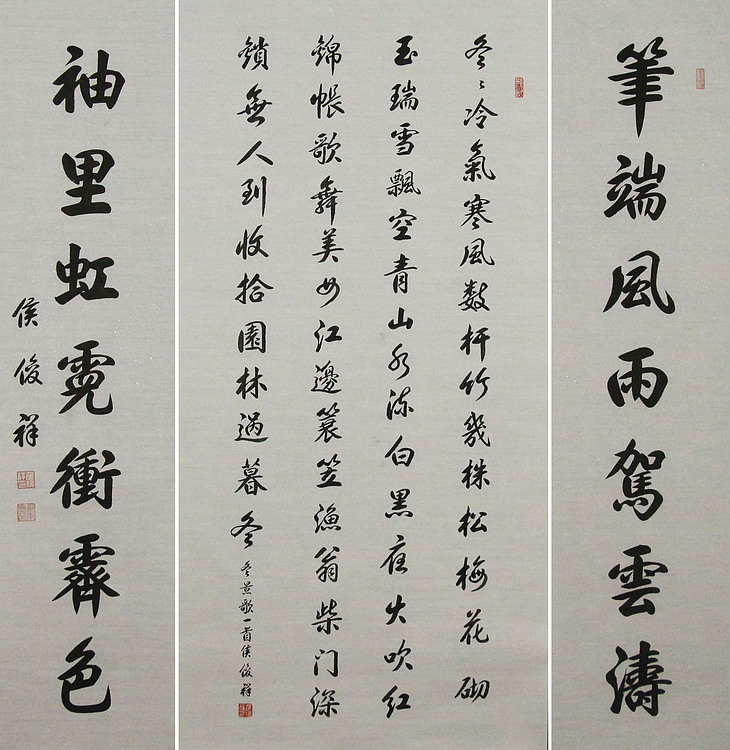 筆端風雨駕雲濤
冬〻冷氣寒風數杆竹幾株松梅花砌
玉瑞雪飄空青山水流白黑夜火吹紅
錦帳歌舞美女江邊簑笠漁翁柴门深
鎖無人到收拾園林過暮冬
冬景歌一首侯俊祥
袖里虹霓衝霽色
侯俊祥